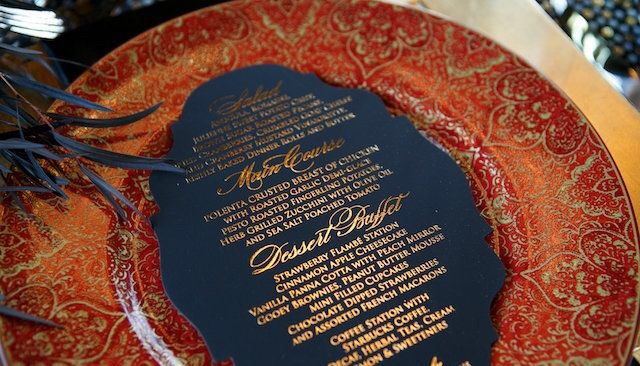 Salad
Arugula, Roasted
Julienne Beets, Potato Chive
Roasted Candied
and Cranberry Mustard Vinaigrette
Freshly Baked Dinner Rolls and Butter
Main Course
Polenta Crusted Breast of Chicken
with Roasted Garlic Demi-Glace
Pesto Roasted Fingerling Potatoes,
Herb Grilled Zucchini with Olive Oil
and Sea Salt Poached Tomato
Dessert Buffet
Strawberry Flambé Station
Cinnamon Apple Cheesecake
Vanilla Panna Cotta with Peach Mirror
Gooey Brownies, Peanut Butter Mousse
Mini Filled Cupcakes
Chocolate Dipped Strawberries
and Assorted French Macarons
Coffee Station with
Herbal Teas, Cream
& Sweeteners